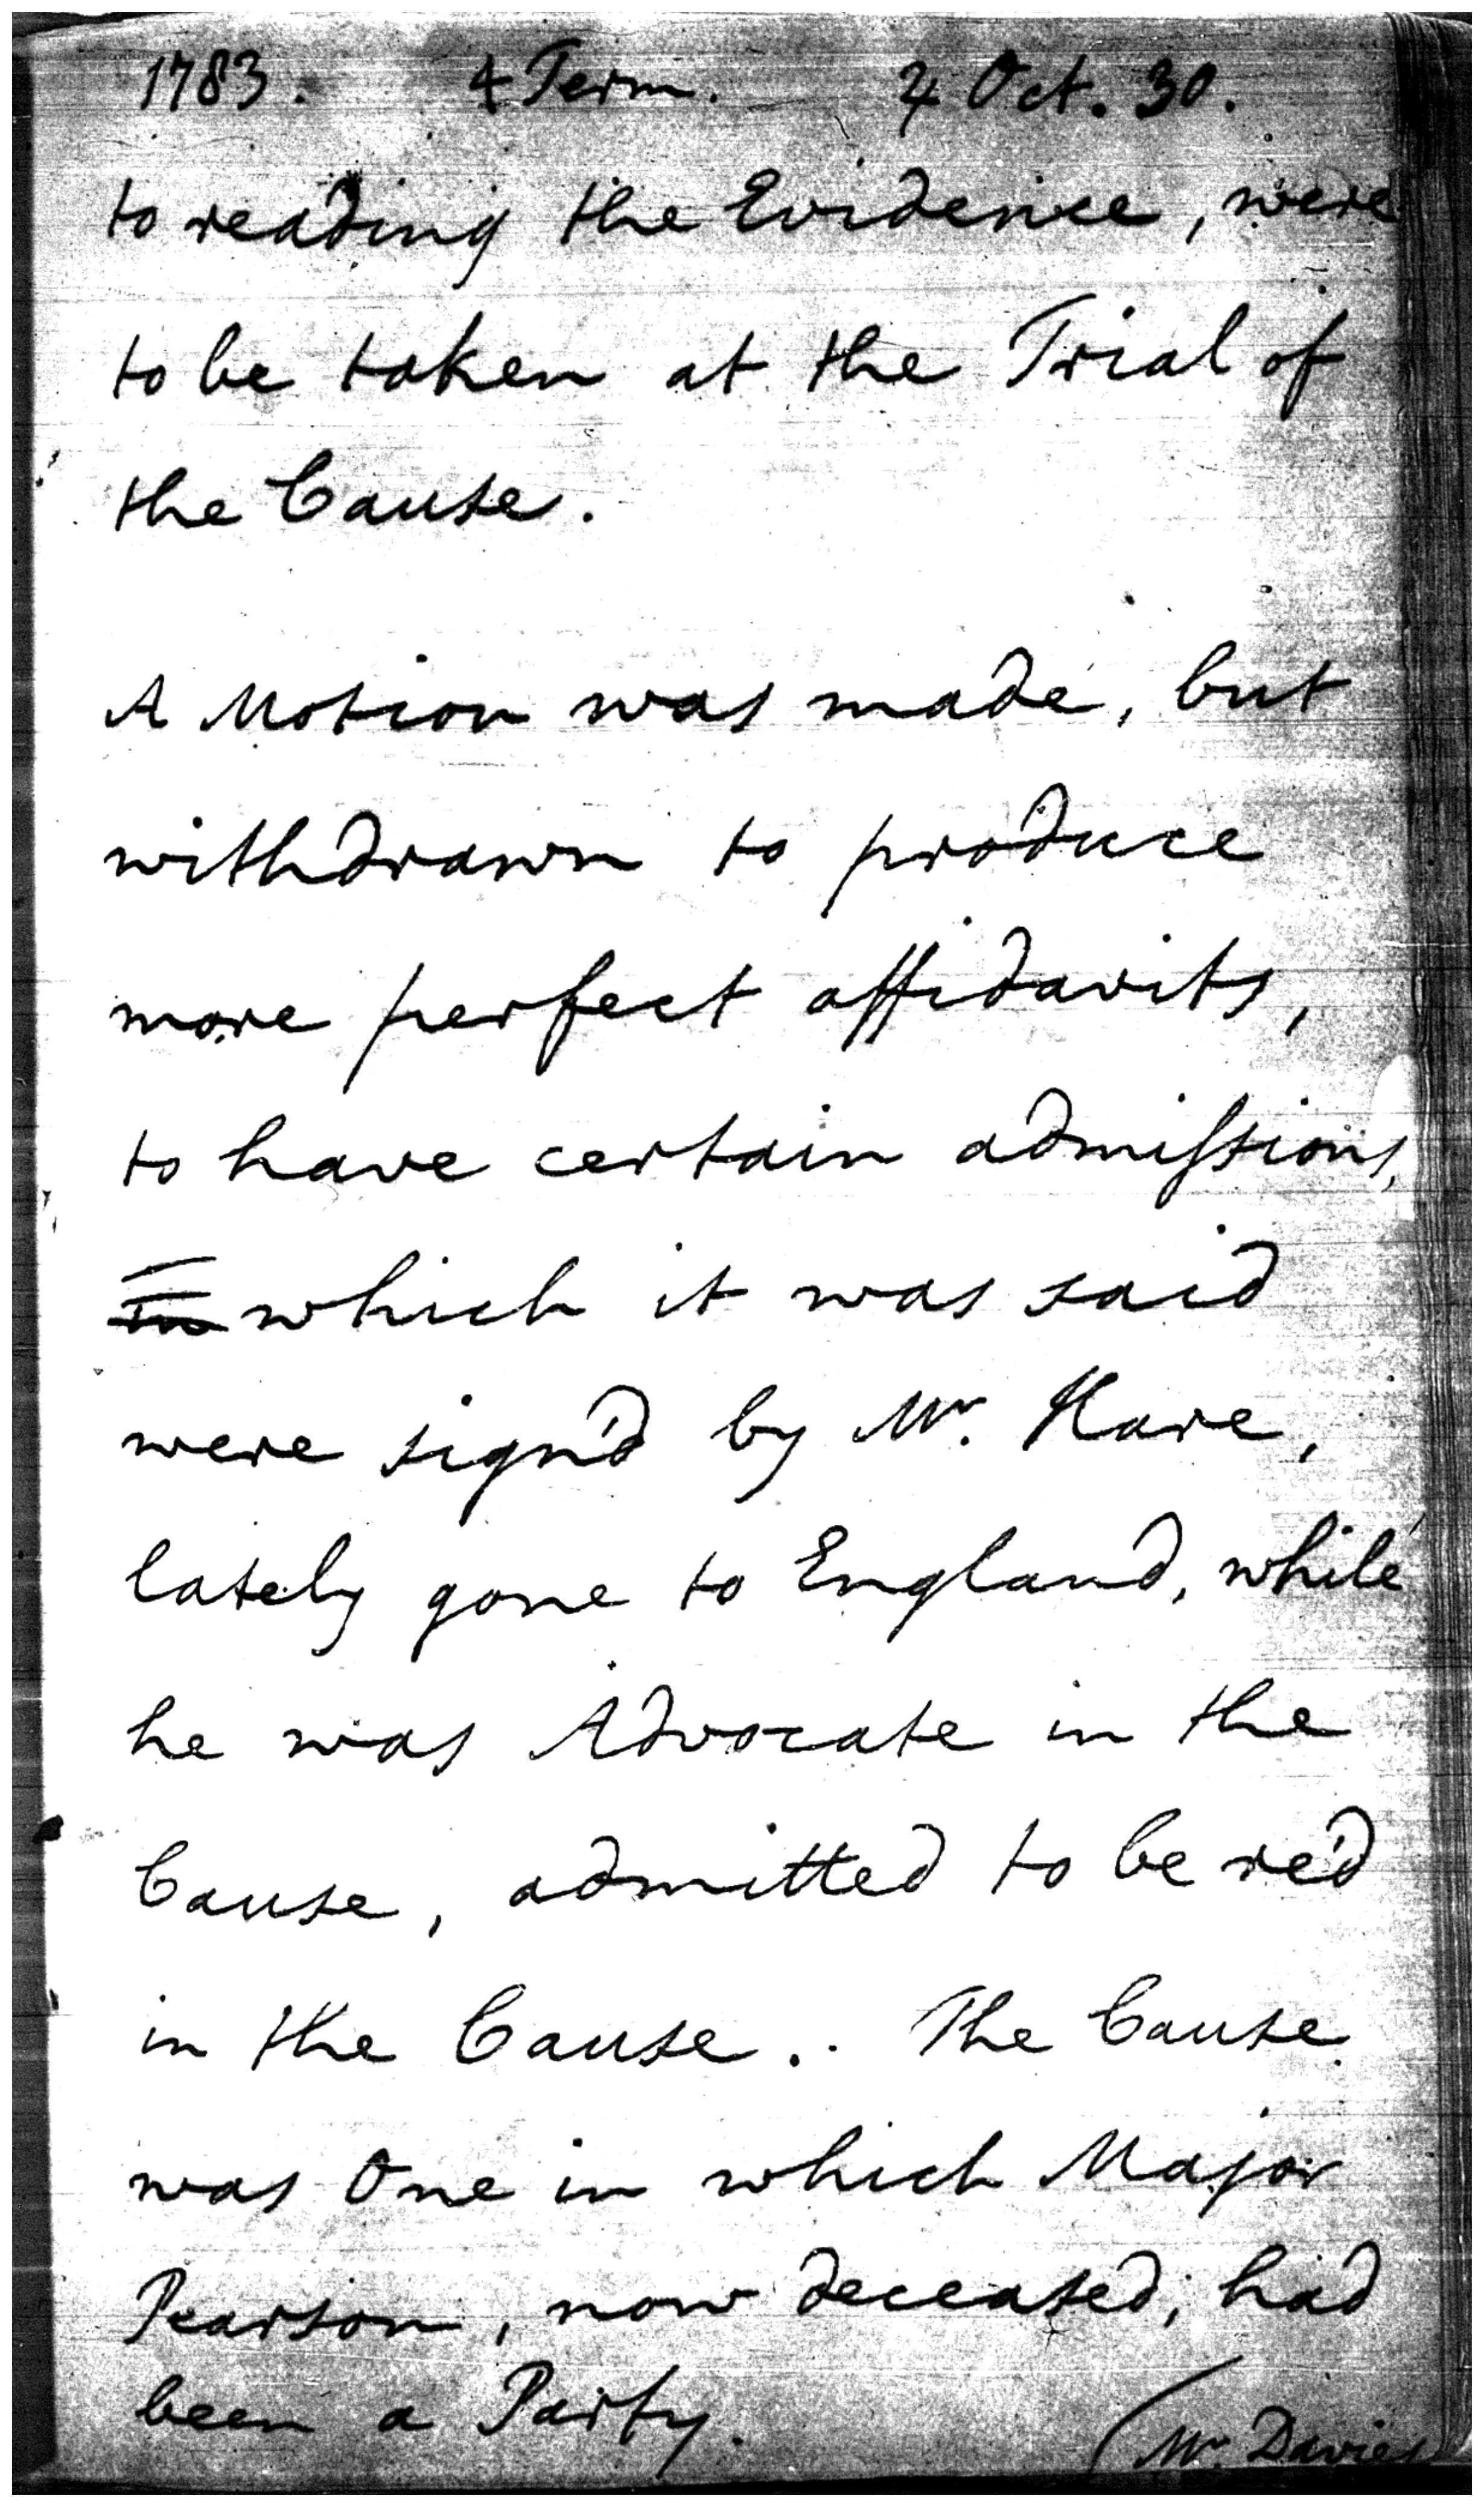 1783. 4 Term. 4 Oct. 30.
to reading the Evidence, were
to be taken at the Trial of
the Cause.
A Motion was made, but
withdrawn to produce
more perfect affidavits,
to have certain admissions,
which it was said
were sign'd by Mr. Hare,
lately gone to England, while
he was Advocate in the
Cause, admitted to be re'd
in the Cause.. The Cause
was One in which Major
Pearson, now deceased, had
been a Party.
(Mr. Davies